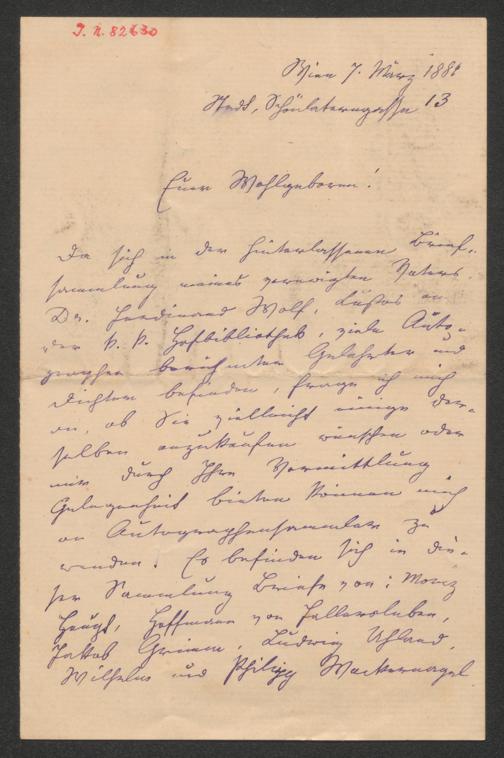 J. N. 82630
Wien 7. März 188
Stadt, Schönlaterngasse 13
Euer Wohlgeboren!
Da sich in der hinterlassenen Brief-
sammlung meines verewigten Vaters
Dr. Ferdinand Wolf, Custos an
der k. k. Hofbibliothek, viele Auto-
graphen berühmter Gelehrter und
Dichter befinden, frage ich mich
an, ob Sie vielleicht einige der-
selben anzukaufen wünschen oder
mir durch Ihre Vermittlung
Gelegenheit bieten können mich
an Autographensammler zu
wenden. Es befinden sich in die-
ser Sammlung Briefe von: Moriz
Haupt, Hoffmann von Fallersleben,
Jakob Grimm, Ludwig Uhland,
Wilhelm und Philipp Wackernagel